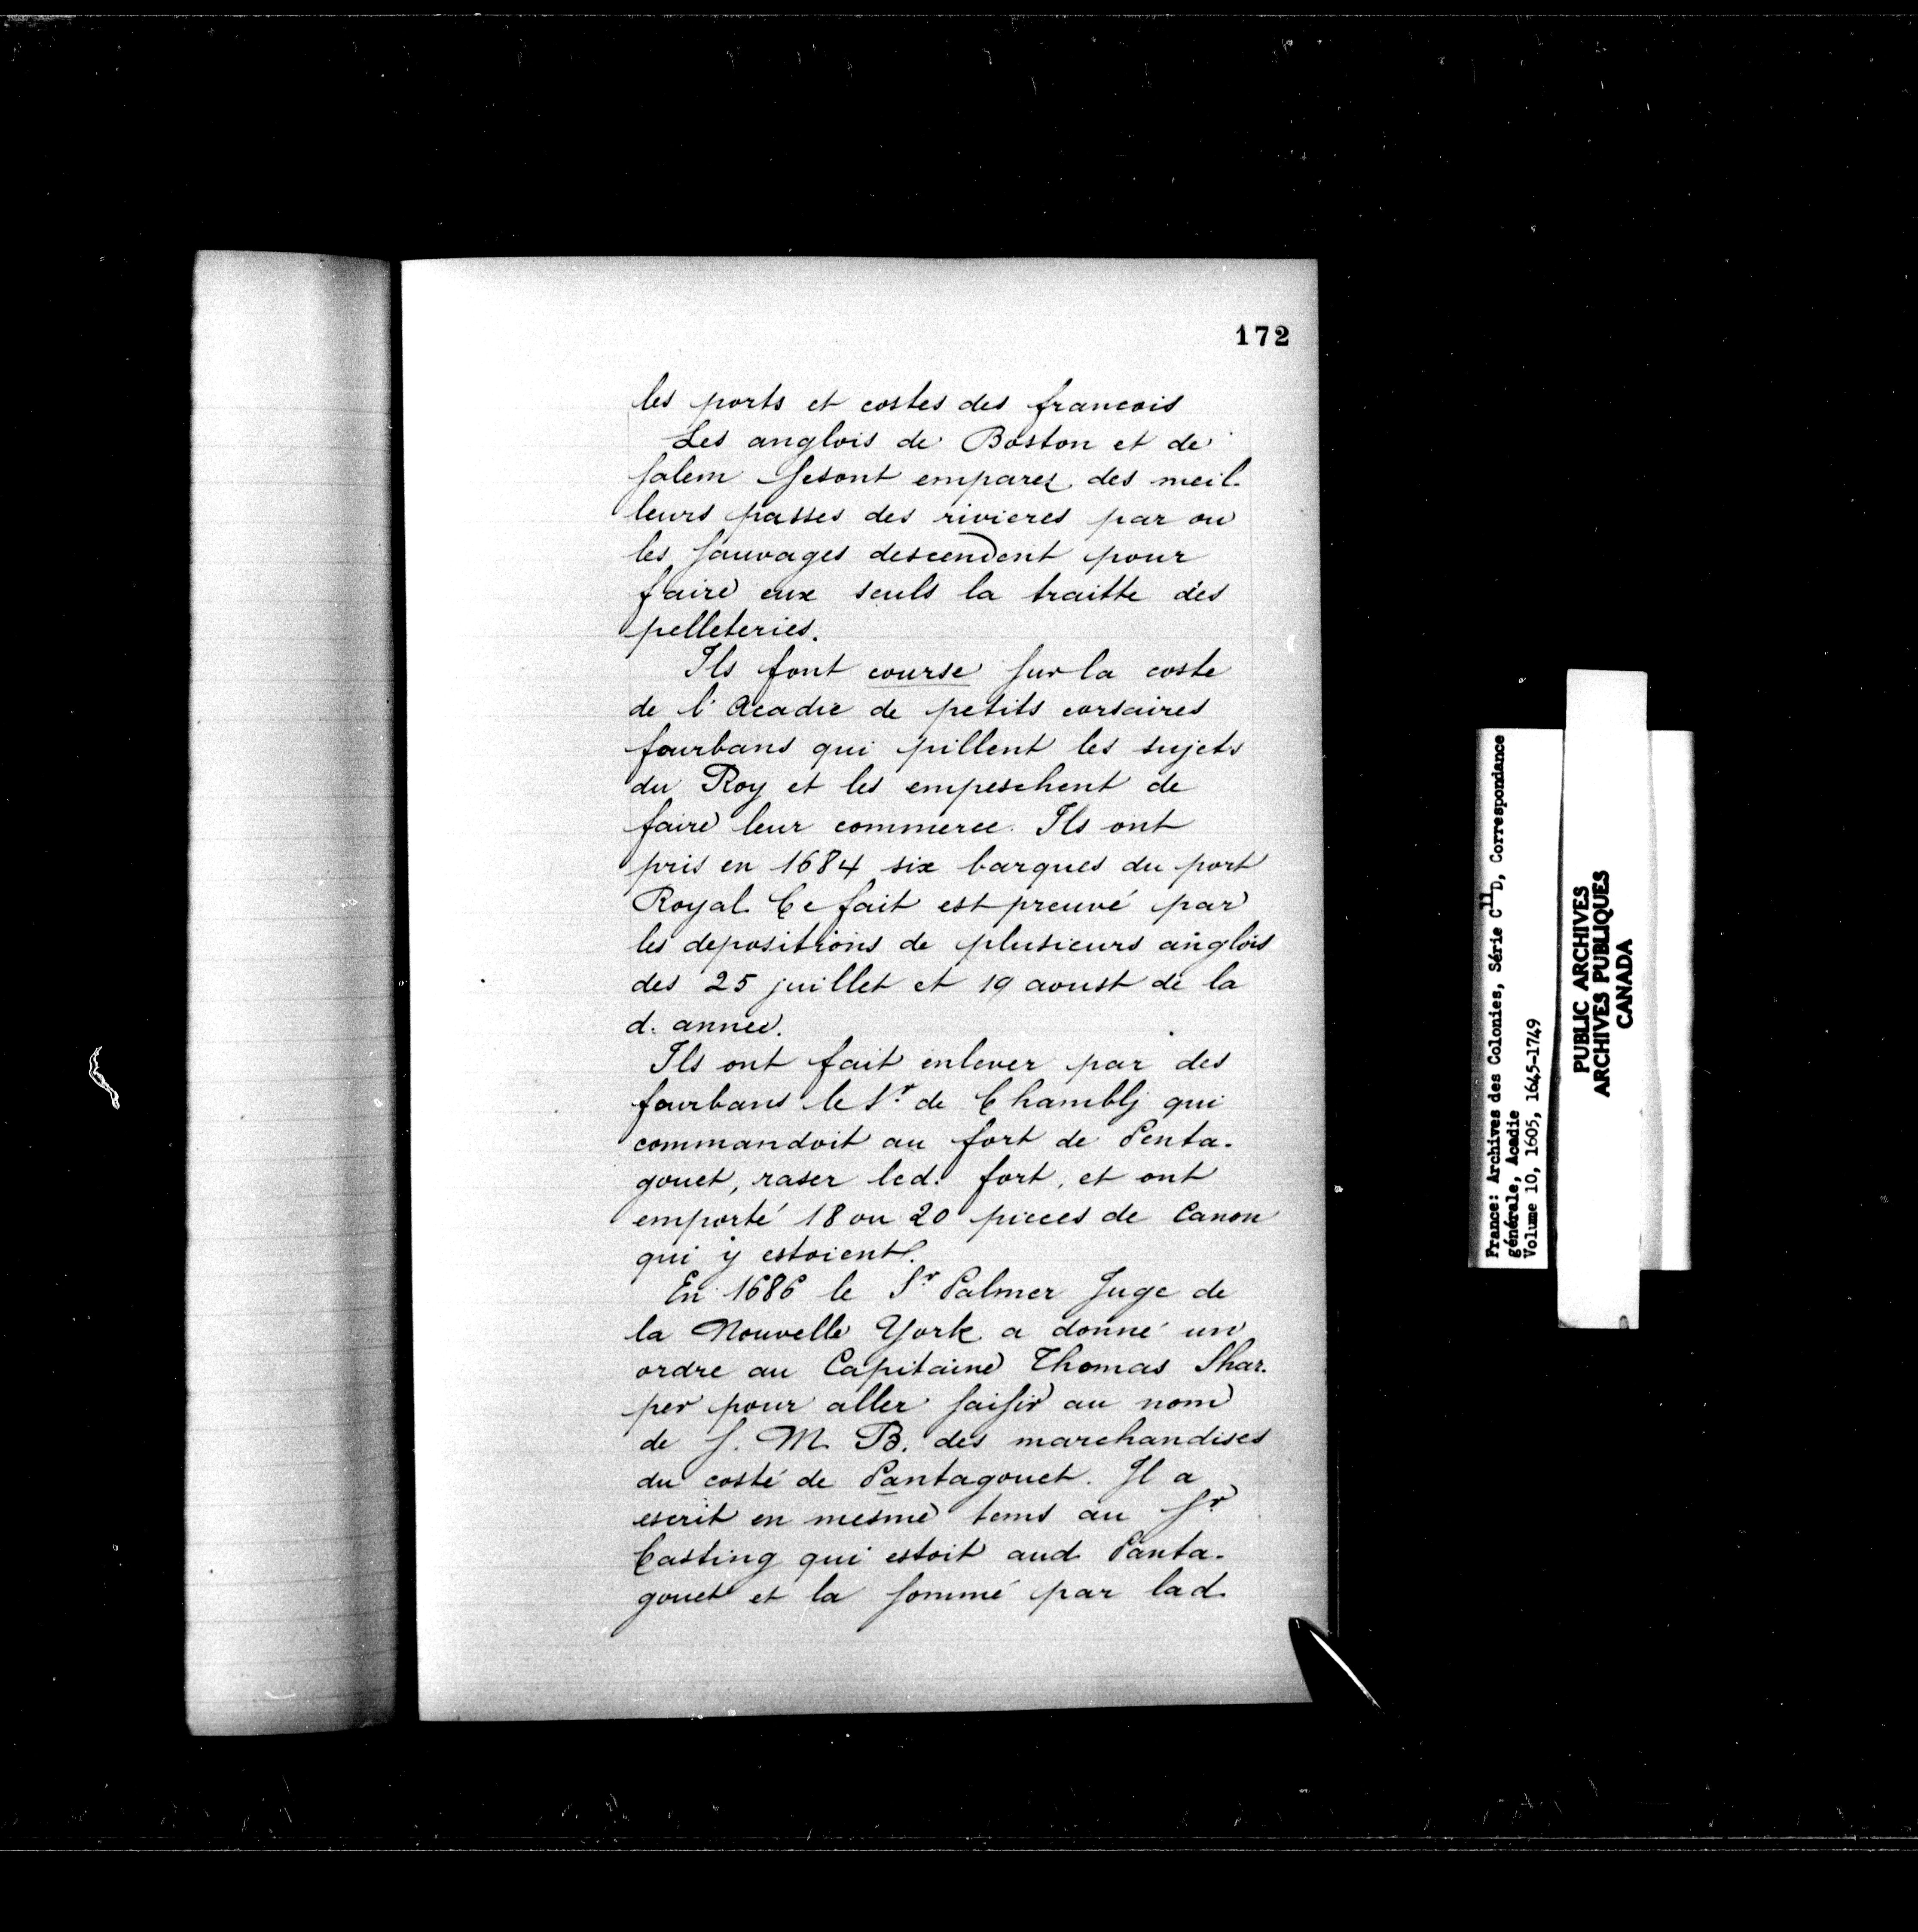 172
les ports et costes des francois
Les anglois de Boston et de
Salem se sont emparez des meil-
leurs passes des rivieres par ou
les sauvages descendent pour
faire eux seuls la traitte des
pelleteries.
Ils font course sur la coste
de l'Acadie de petits corsaires
fourbans qui pillent les sujets
du Roy et les empeschent de
faire leur commerce. Ils ont
pris en 1684 six barques du port
Royal. Ce fait est preuvé par
les depositions de plusieurs anglois
des 25 juillet et 19 aoust de la
d. année.
Ils ont fait enlever par des
fourbans le Sr. de Chambly qui
commandoit au fort de Penta-
gouet, raser led. fort, et ont
emporté 18 ou 20 pieces de Canon
qui y estoient.
En 1686 le Sr Palmer Juge de
la Nouvelle York a donné un
ordre au Capitaine Thomas Shar-
per pour aller saisir au nom
de S. M. B. des marchandises
du costé de Pantagouet. Il a
escrit en mesme tems au Sr
Casting qui estoit aud. Panta-
gouet et la sommé par lad.
France: Archives des Colonies, Série C11D, Correspondance
générale, Acadie
Volume 10, 1605, 1645-1749
PUBLIC ARCHIVES
ARCHIVES PUBLIQUES
CANADA